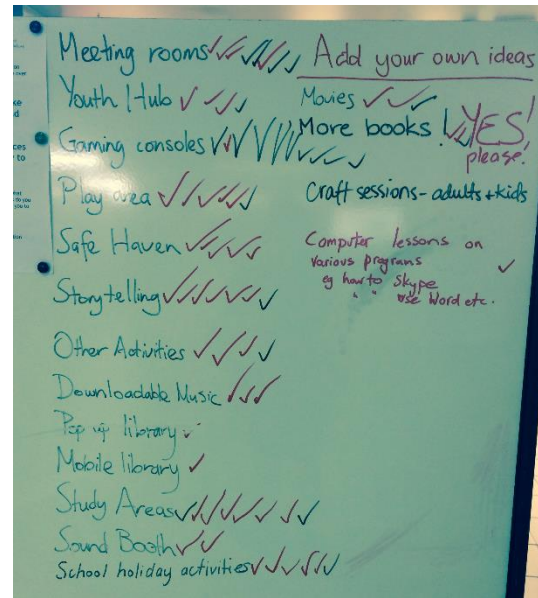 Meeting rooms
Youth Hub
Gaming consoles
Play area
Safe Haven
Storytelling
Other Activities
Downloadable Music
Pop up library
Mobile library
Study Areas
Sound Booth
School holiday activities
Add your own ideas
Movies
More books! YES!
please!
Craft sessions - adults + kids
Computer lessons on
various programs
eg how to Skype
" " use Word etc.